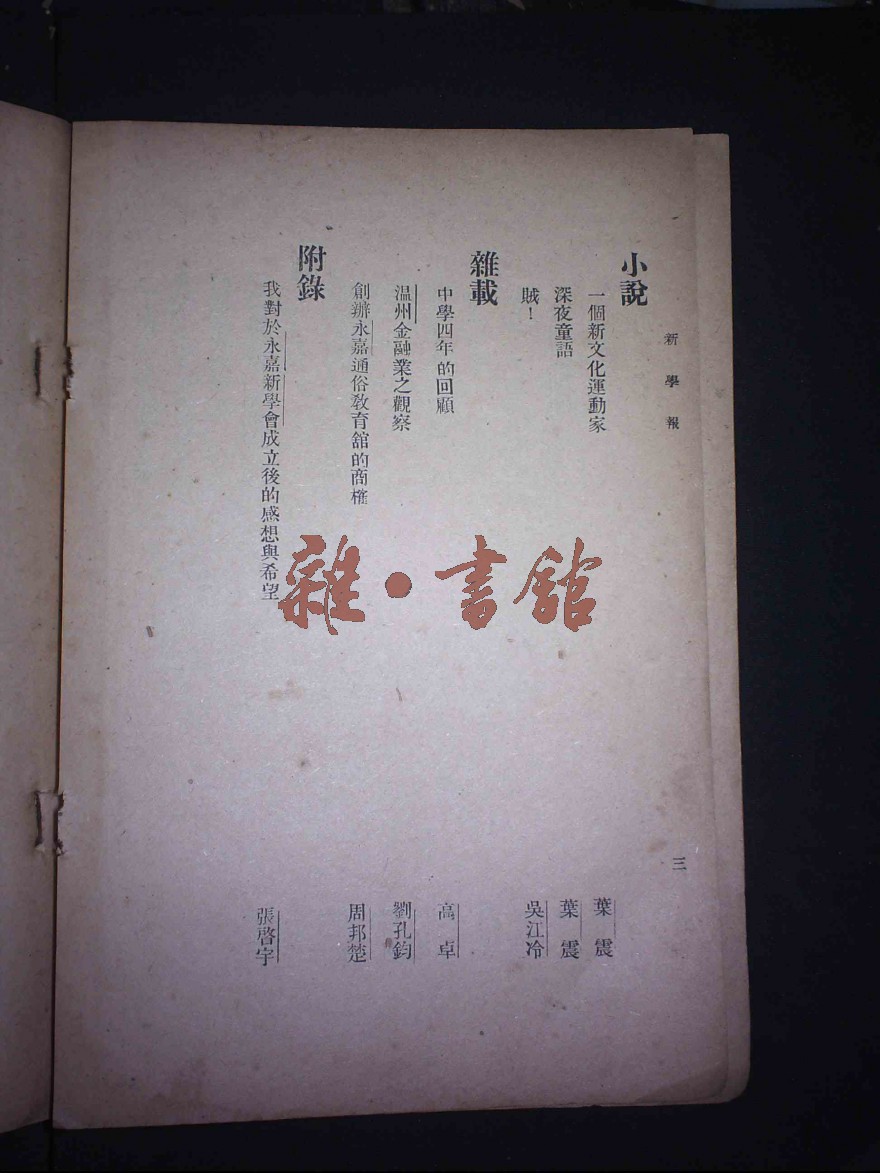 新學報
三
小說
一個新文化運動家 葉震
深夜童語 葉震
賊！ 吳江冷
雜載
中學四年的回顧 高卓
温州金融業之觀察 劉孔鈞
創辦永嘉通俗教育舘的商榷 周邦楚
附錄
我對於永嘉新學會成立後的感想與希望 張啓宇
雜·書舘